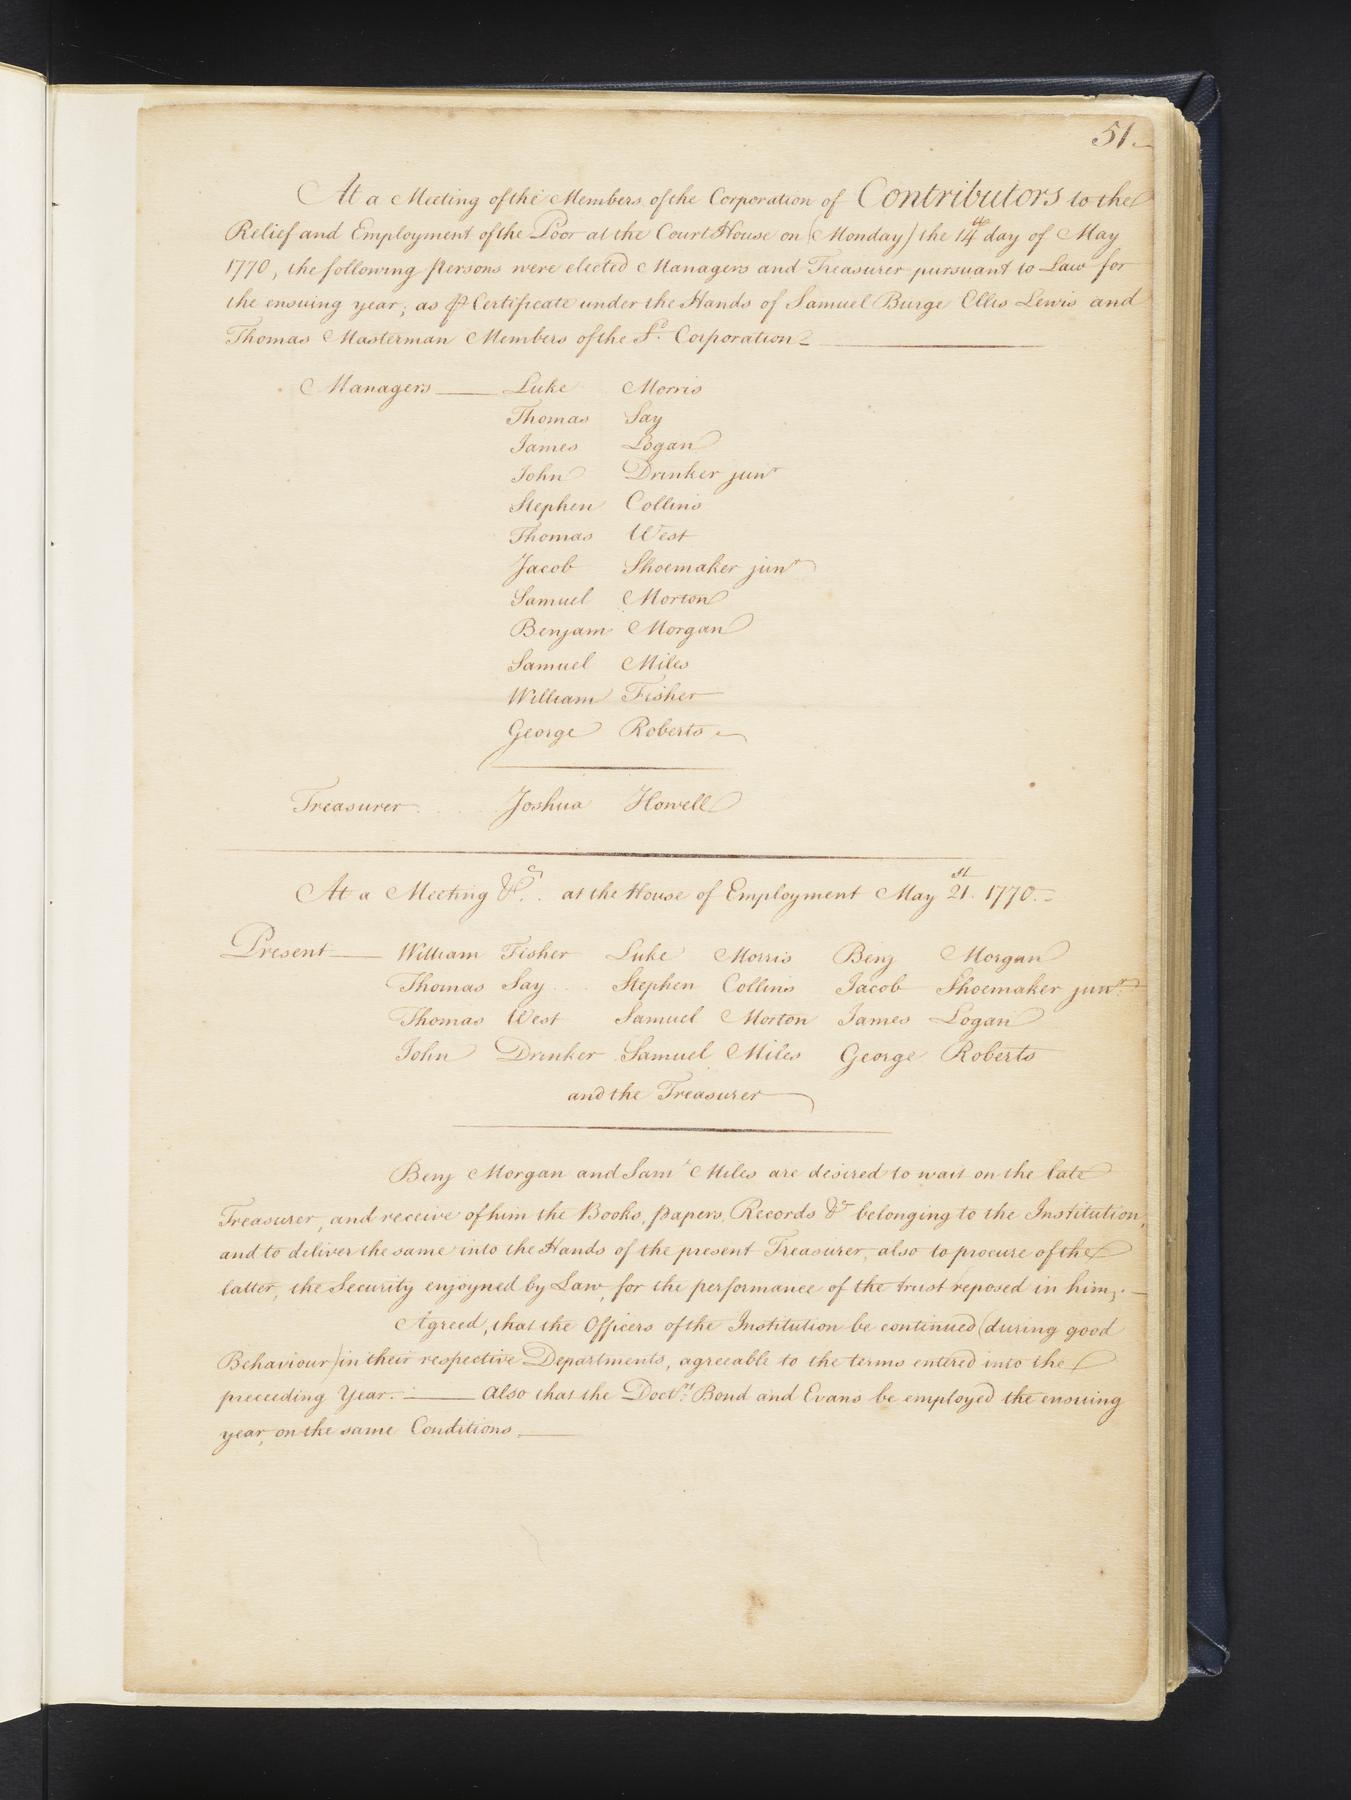 51.
At a Meeting of the Members of the Corporation of Contributors to the
Relief and Employment of the Poor at the Court House on (Monday) the 14th day of May
1770, the following persons were elected Managers and Treasurer pursuant to Law for
the ensuing year, as ⅌ Certificate under the Hands of Samuel Burge Ellis Lewis and
Thomas Masterman Members of the Sd. Corporation
Managers Luke Morris
Thomas Say
James Logan
John Drinker junr
Stephen Collins
Thomas West
Jacob Shoemaker junr
Samuel Morton
Benjam Morgan
Samuel Miles
William Fisher
George Roberts
Treasurer Joshua Howell
At a Meeting &c. at the House of Employment May 21st. 1770.
Present William Fisher Luke Morris Benj Morgan
Thomas Say Stephen Collins Jacob Shoemaker junr.
Thomas West Samuel Morton James Logan
John Drinker Samuel Miles George Roberts
and the Treasurer
Benj Morgan and Saml Miles are desired to wait on the late
Treasurer, and receive of him the Books, papers, Records &c belonging to the Institution,
and to deliver the same into the Hands of the present Treasurer, also to procure of the
latter, the Security enjoyned by Law, for the performance of the trust reposed in him;.
Agreed, that the Officers of the Institution be continued (during good
Behaviour) in their respective Departments, agreeable to the terms entered into the
preceeding Year. Also that the Doctrs. Bond and Evans be employed the ensuing
year, on the same Conditions.